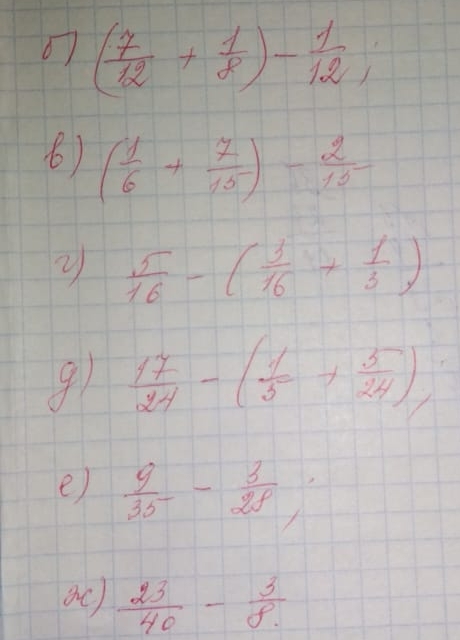 б) (7/12 + 1/8) - 1/12;
в) (1/6 + 7/15) - 2/15
г) 5/16 - (3/16 + 1/3)
д) 17/24 - (1/5 + 5/24);
е) 9/35 - 3/28;
ж) 23/40 - 3/8.